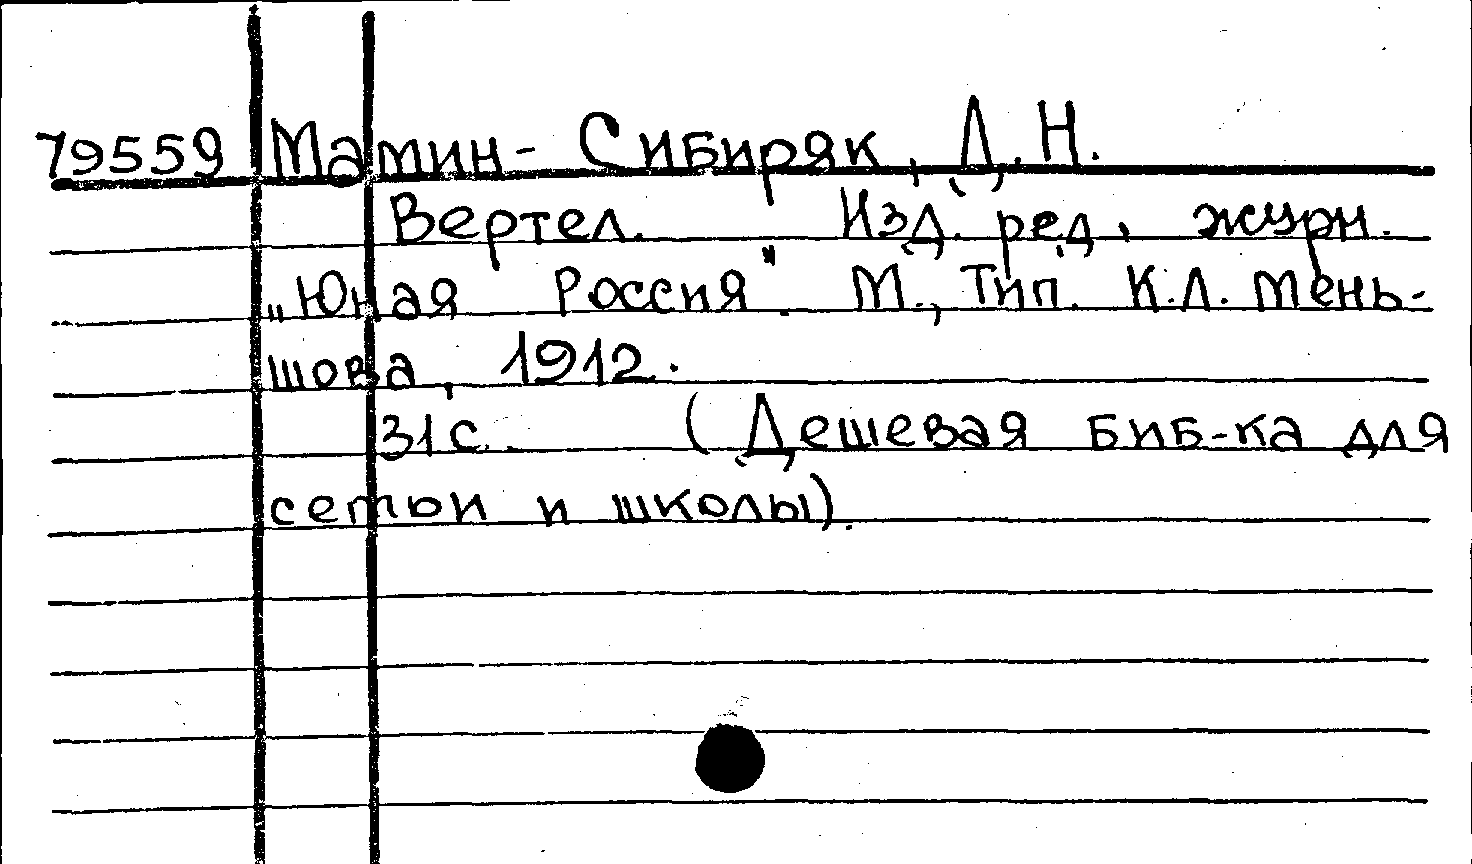 79559 Мамин-Сибиряк, Д. Н.
Вертел. Изд. ред. журн.
„Юная Россия". М., Тип. К.Л. Мень-
шова, 1912.
31 с. (Дешевая биб-ка для
семьи и школы).